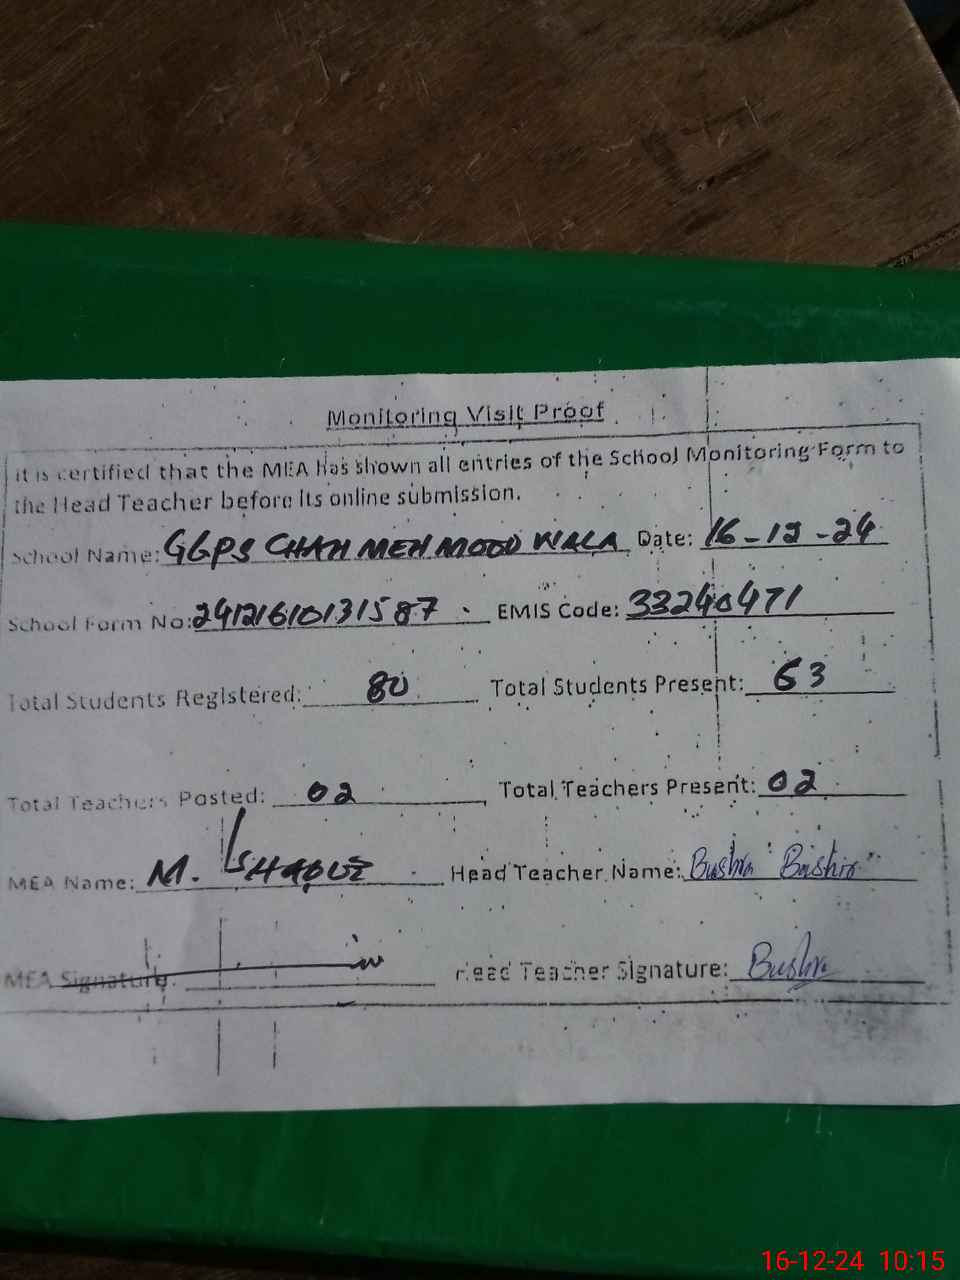 Monitoring Visit Proof
it is certified that the MEA has shown all entries of the School Monitoring Form to
the Head Teacher before its online submission.
School Name: GGPS CHAH MEHMOOD WALA Date: 16-12-24
School Form No: 24121610131587 EMIS Code: 33240471
Total Students Registered: 80 Total Students Present: 63
Total Teachers Posted: 02 Total Teachers Present: 02
MEA Name: M. Head Teacher Name: Bushra
MEA Signature: Head Teacher Signature: Bushra
16-12-24 10:15